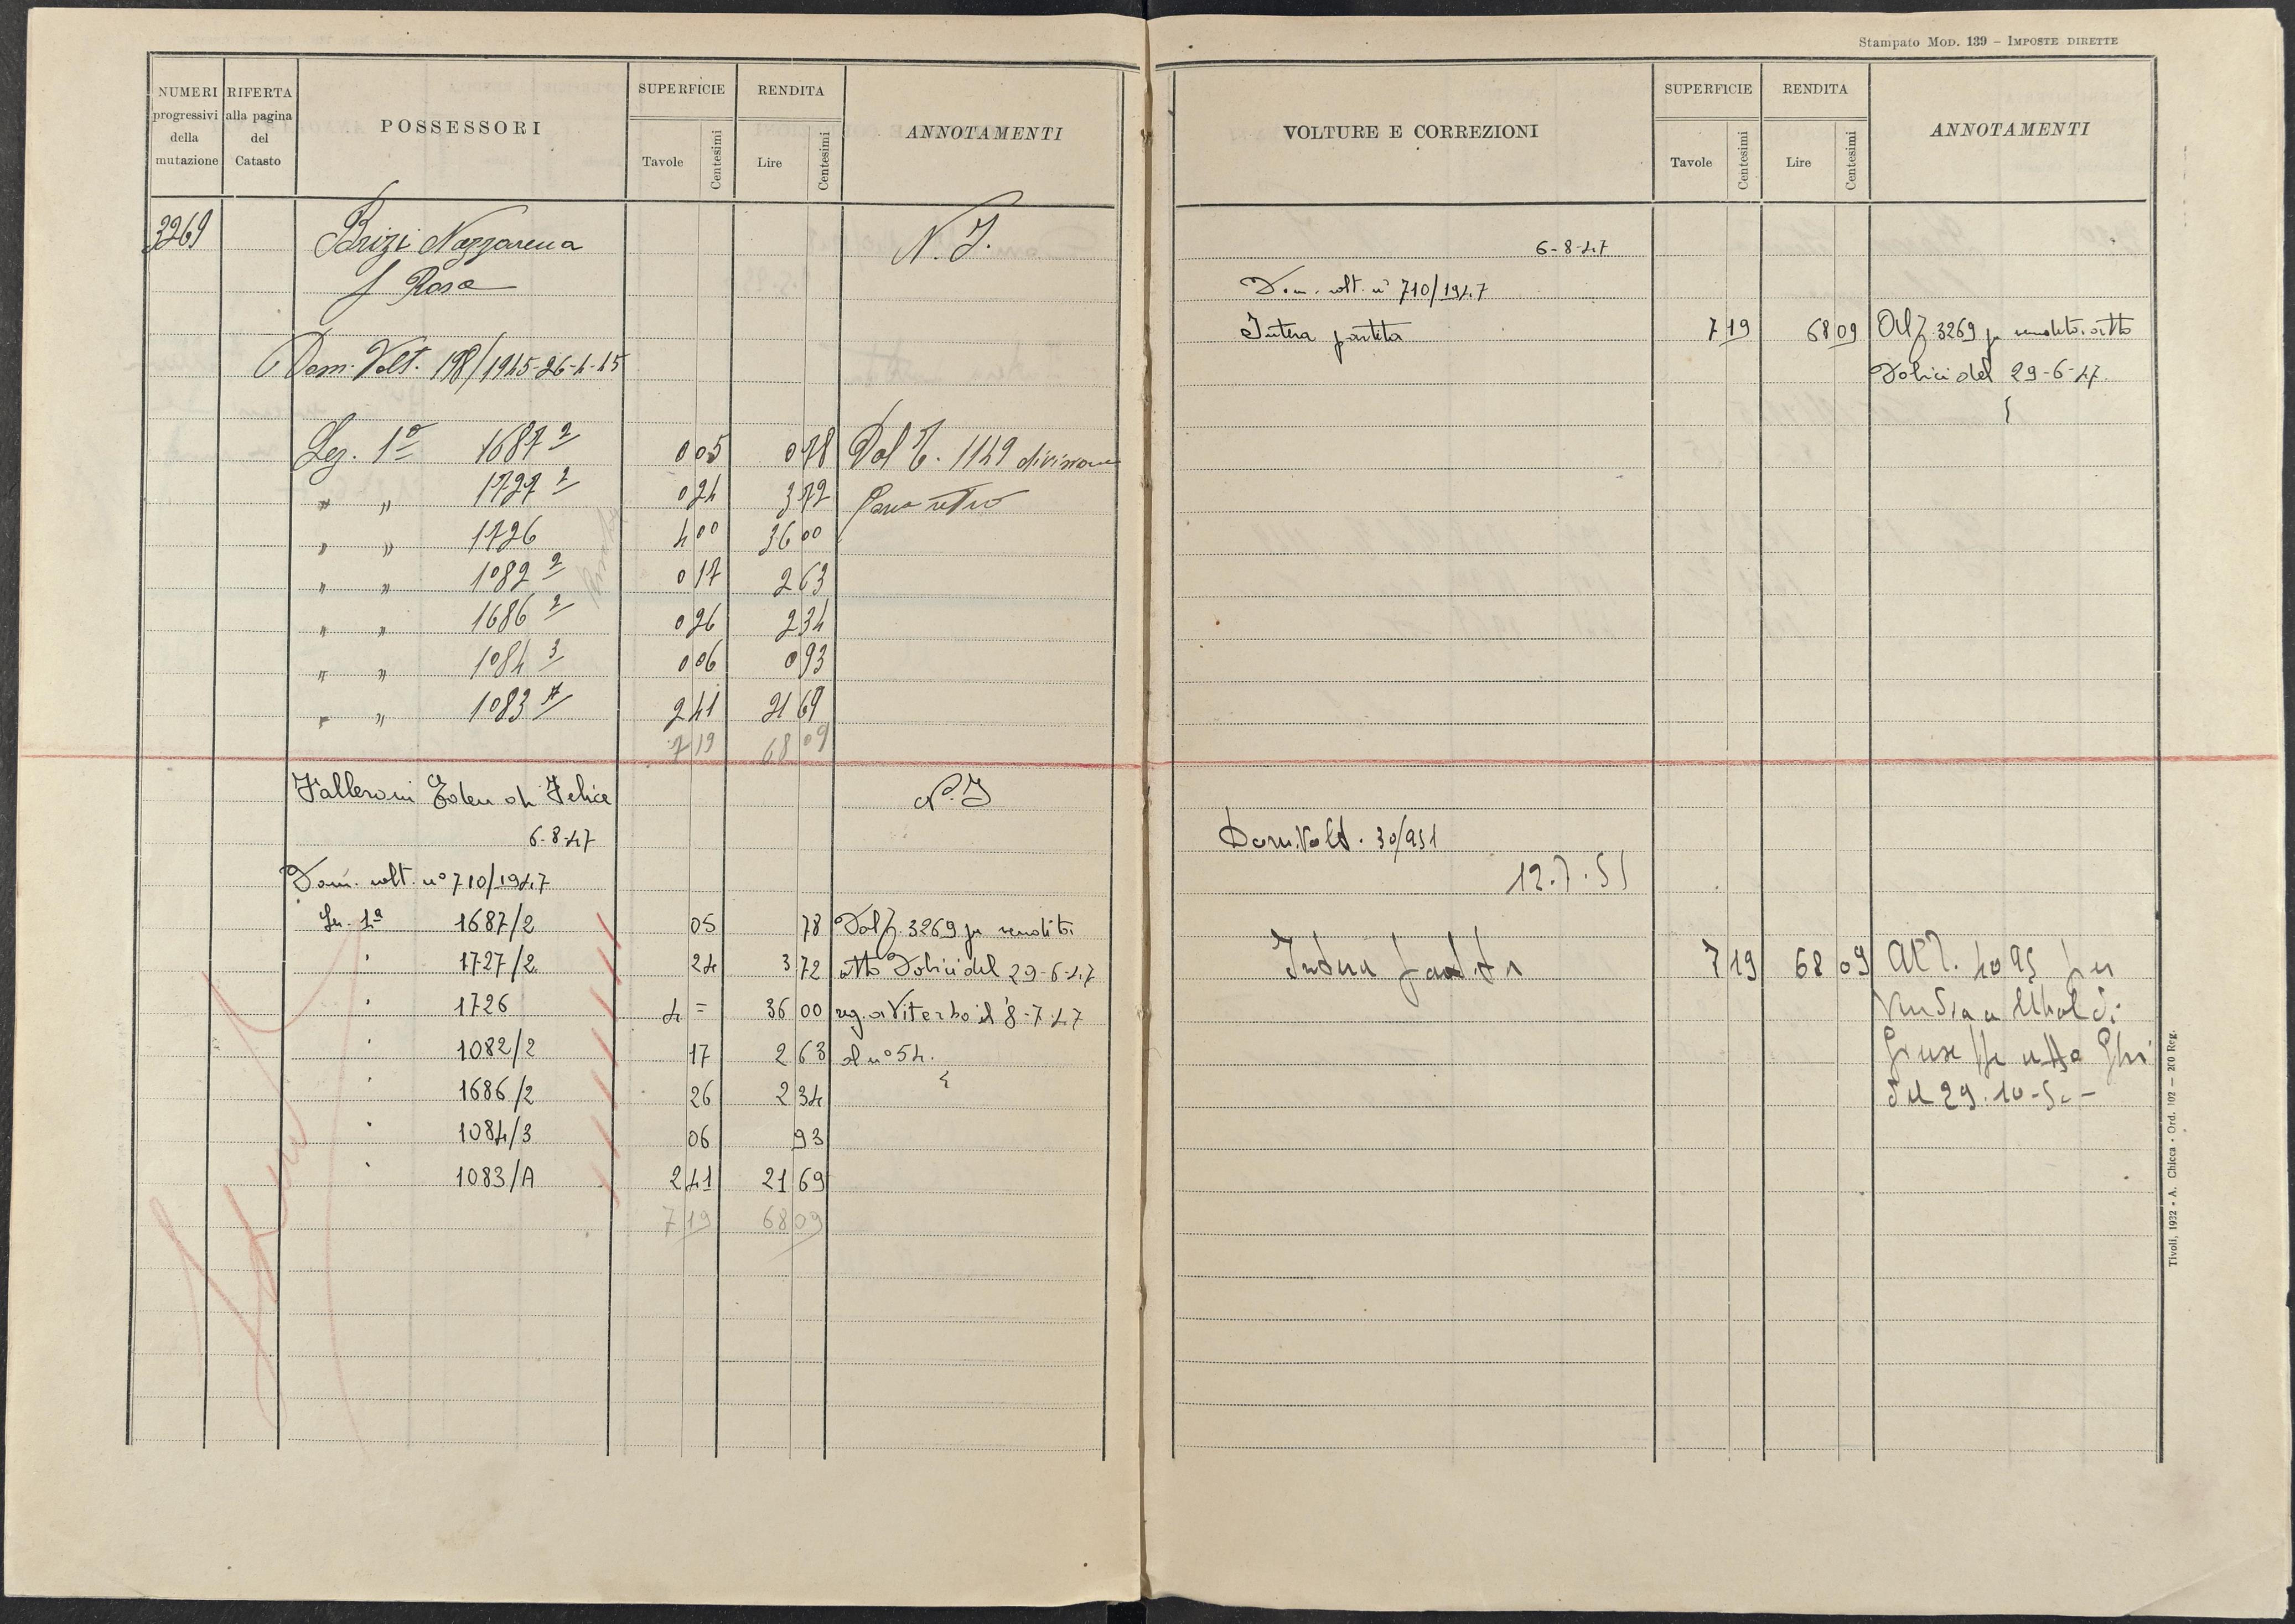 NUMERI progressivi della mutazione
RIFERTA alla pagina del Catasto
POSSESSORI
SUPERFICIE
Tavole Centesimi
RENDITA
Lire Centesimi
ANNOTAMENTI
3269 Brizi Nazzarena N. I.
f Rosa
Dom. Volt. 198/1945-26-4-45
Sez. 1ª 1687 2 0 05 0 78 Dal T. 1149 divisione
" " 1727 2 0 24 3 72
" " 1726 4 00 36 00
" " 1082 2 0 17 2 63
" " 1686 2 0 26 2 34
" " 1084 3 0 06 0 93
" " 1083 A 2 41 21 69
7 19 68 09
Falleroni Eden di Felice N. I
6-8-47
Dom. volt. nº 710/1947
Sez. 1ª 1687/2 05 78 Dal T. 3269 per vendita
" 1727/2 24 3 72 atto Dobici del 29-6-47
" 1726 4 = 36 00 reg. a Viterbo il 8-7-47
" 1082/2 17 2 63 al nº 54.
" 1686/2 26 2 34
" 1084/3 06 93
" 1083/A 2 41 21 69
7 19 68 09
Stampato Mod. 139 - Imposte dirette
VOLTURE E CORREZIONI
SUPERFICIE
Tavole Centesimi
RENDITA
Lire Centesimi
ANNOTAMENTI
6-8-47
Dom. volt. nº 710/1947
Intera partita 7 19 68 09 Al T. 3269 per vendita atto
Dobici del 29-6-47.
Dom. Volt. 30/951
12.7.51
Intera partita 7 19 68 09 Al T. 4095 per
Giuseppe atto
del 29.10-5
Tivoli, 1932 - A. Chicca - Ord. 102 - 200 Reg.